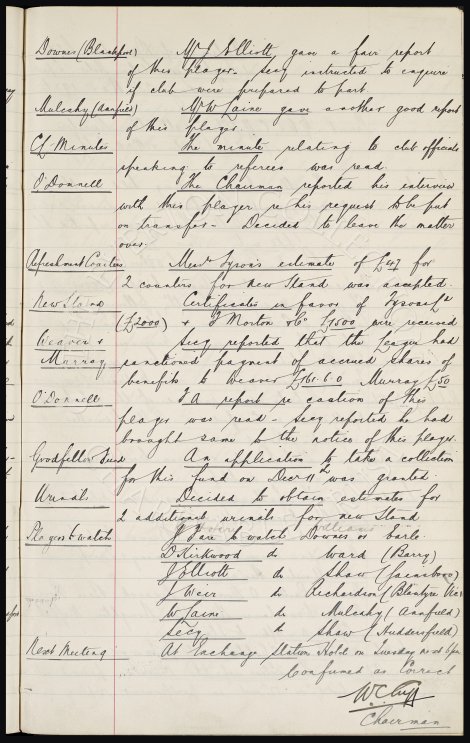 Downes (Blackpool) Mr J Elliott gave a fair report
of this player. Secy instructed to enquire
if club were prepared to part.
Mulcahy (Annfield) Mr W Laine gave another good report
of this player.
C.L. Minutes The minute relating to club officials
speaking to referees was read.
O'Donnell The Chairman reported his interview
with this player re his request to be put
on transfer - Decided to leave the matter
over.
Refreshment Counters Tyson's estimate of £47 for
2 counters for new Stand was accepted.
New Stand Certificates in favor of Tysons Ld
(£2000) & F Morton & Co £7500 were received
Weaver & Secy reported that the League had
Murray sanctioned payment of accrued shares of
benefits to Weaver £161.6.0 Murray £50
O'Donnell A report re caution of this
player was read - Secy reported he had
brought same to the notice of this player.
Goodfellow Fund An application to take a collection
for this fund on Decr 11th was granted
Urinals Decided to obtain estimates for
2 additional urinals for new Stand
Players to watch J Fare to watch Downes or Earle.
D Kirkwood do Ward (Barry)
J Elliott do Shaw (Gainsboro)
J Weir do Richardson (Blantyre Vics)
W Laine do Mulcahy (Annfield)
Secy do Shaw (Huddersfield)
Next Meeting At Exchange Station Hotel on Tuesday next
Confirmed as Correct
W.C. Cuff
Chairman